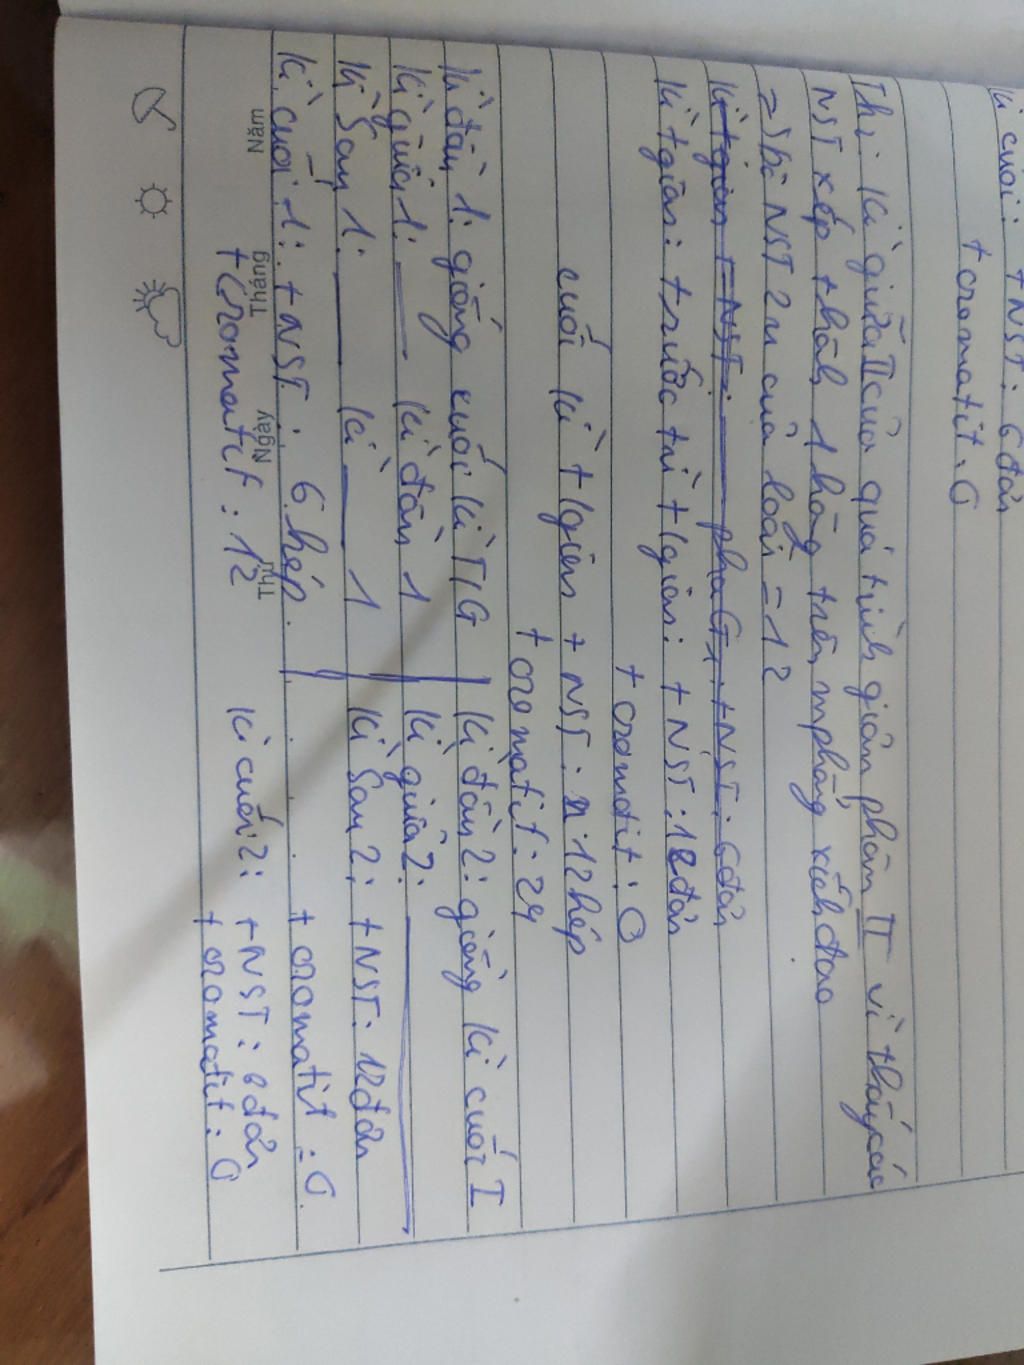 kì cuối: + NST: 6 đơn
+ cromatit: 0
Th1: kì giữa II của quá trình giảm phân II vì thấy các
NST xếp thành 1 hàng trên mphẳng xích đạo
=> bộ NST 2n của loài = 12
kì tgian: trước khi tgian: + NST: 12 đơn
+ cromatit: 0
cuối kì tgian + NST: 12 kép
+ cromatit: 24
kì đầu 1: giống cuối kì T/G
kì giữa 1: — kì đầu 1
kì Sau 1: — kì — 1
kì cuối 1: + NST: 6 kép.
+ Cromatit: 12
kì đầu 2: giống kì cuối I
kì giữa 2: —
kì Sau 2: + NST: 12 đơn
+ cromatit: 0.
kì cuối 2: + NST: 6 đơn
+ cromatit: 0
Năm Tháng Ngày Thứ